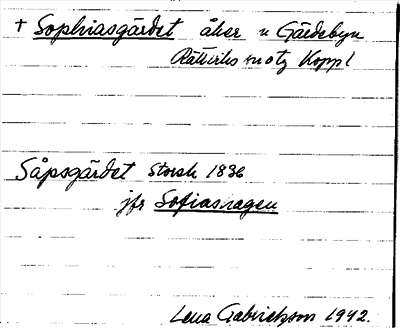 + Sophiasgärdet åker u Gärdebyn
Rättviks sn otg Koppl
Såpsgärdet Storsk 1836
jfr Sofiasvagen
Lena Gabrielsson 1942.